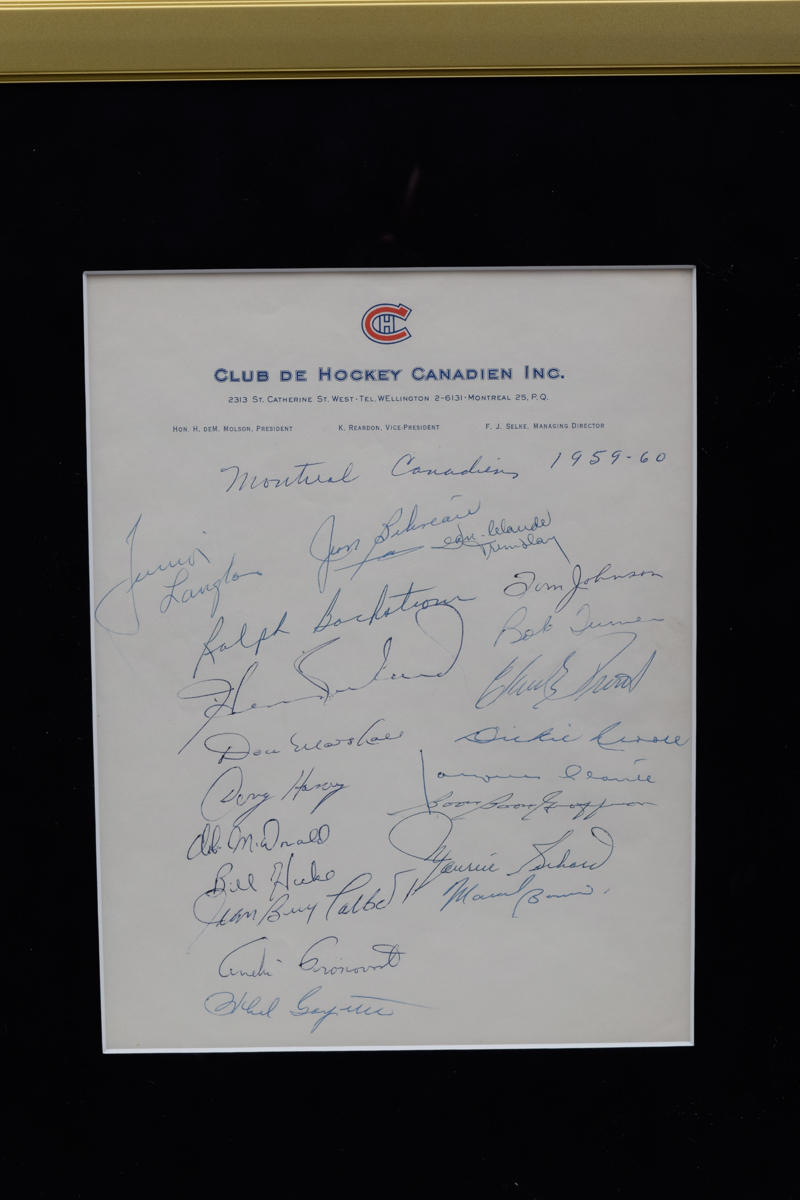 CH
CLUB DE HOCKEY CANADIEN INC.
2313 ST. CATHERINE ST. WEST · TEL. WELLINGTON 2-6131 · MONTREAL 25, P.Q.
HON. H. DEM. MOLSON, PRESIDENT K. REARDON, VICE-PRESIDENT F. J. SELKE, MANAGING DIRECTOR
Montreal Canadiens 1959-60
Junior Langlois
Jean Béliveau
Jean-Claude Tremblay
Ralph Backstrom
Tom Johnson
Bob Turner
Henri Richard
Claude Provost
Don Marshall
Dickie Moore
Doug Harvey
Jacques Plante
Boom Boom Geoffrion
Ab. McDonald
Maurice Richard
Bill Hicke
Marcel Bonin
Jean Guy Talbot
André Pronovost
Phil Goyette